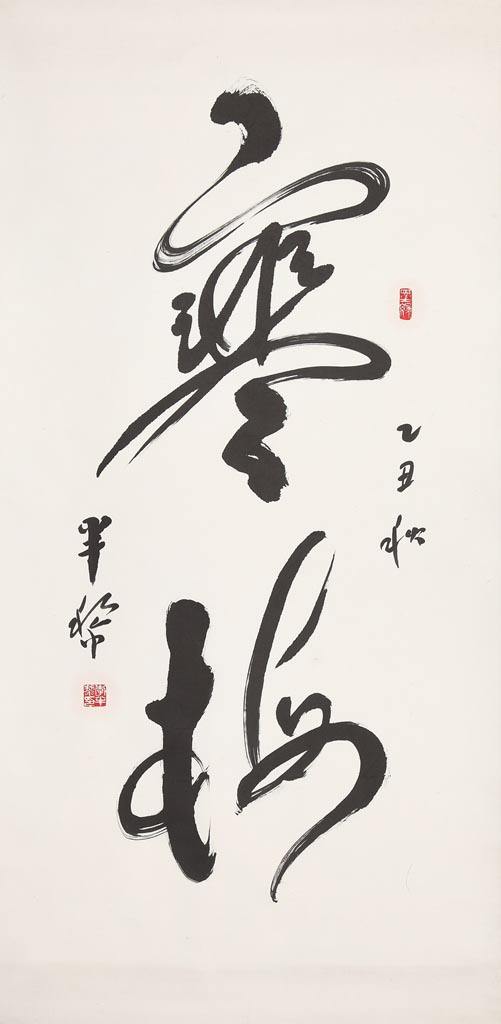 寒梅
乙丑秋
半黎